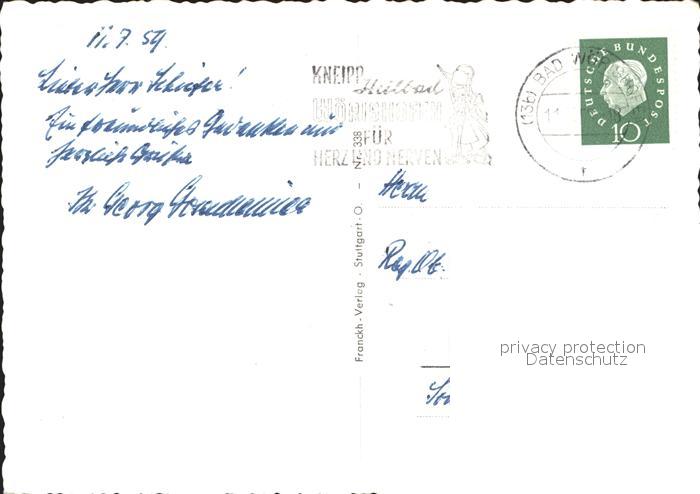 11.7.59.
Lieber Herr
Ein freundliches Gedenken und
herzliche Grüße
Ihr Georg
KNEIPP
Heilbad
WÖRISHOFEN
FÜR
HERZ UND NERVEN
(13b) BAD WÖ
11
r
DEUTSCHE BUNDESPOST
10
Franckh-Verlag - Stuttgart-O. - Nr. 338
Herrn
Reg.
privacy protection
Datenschutz